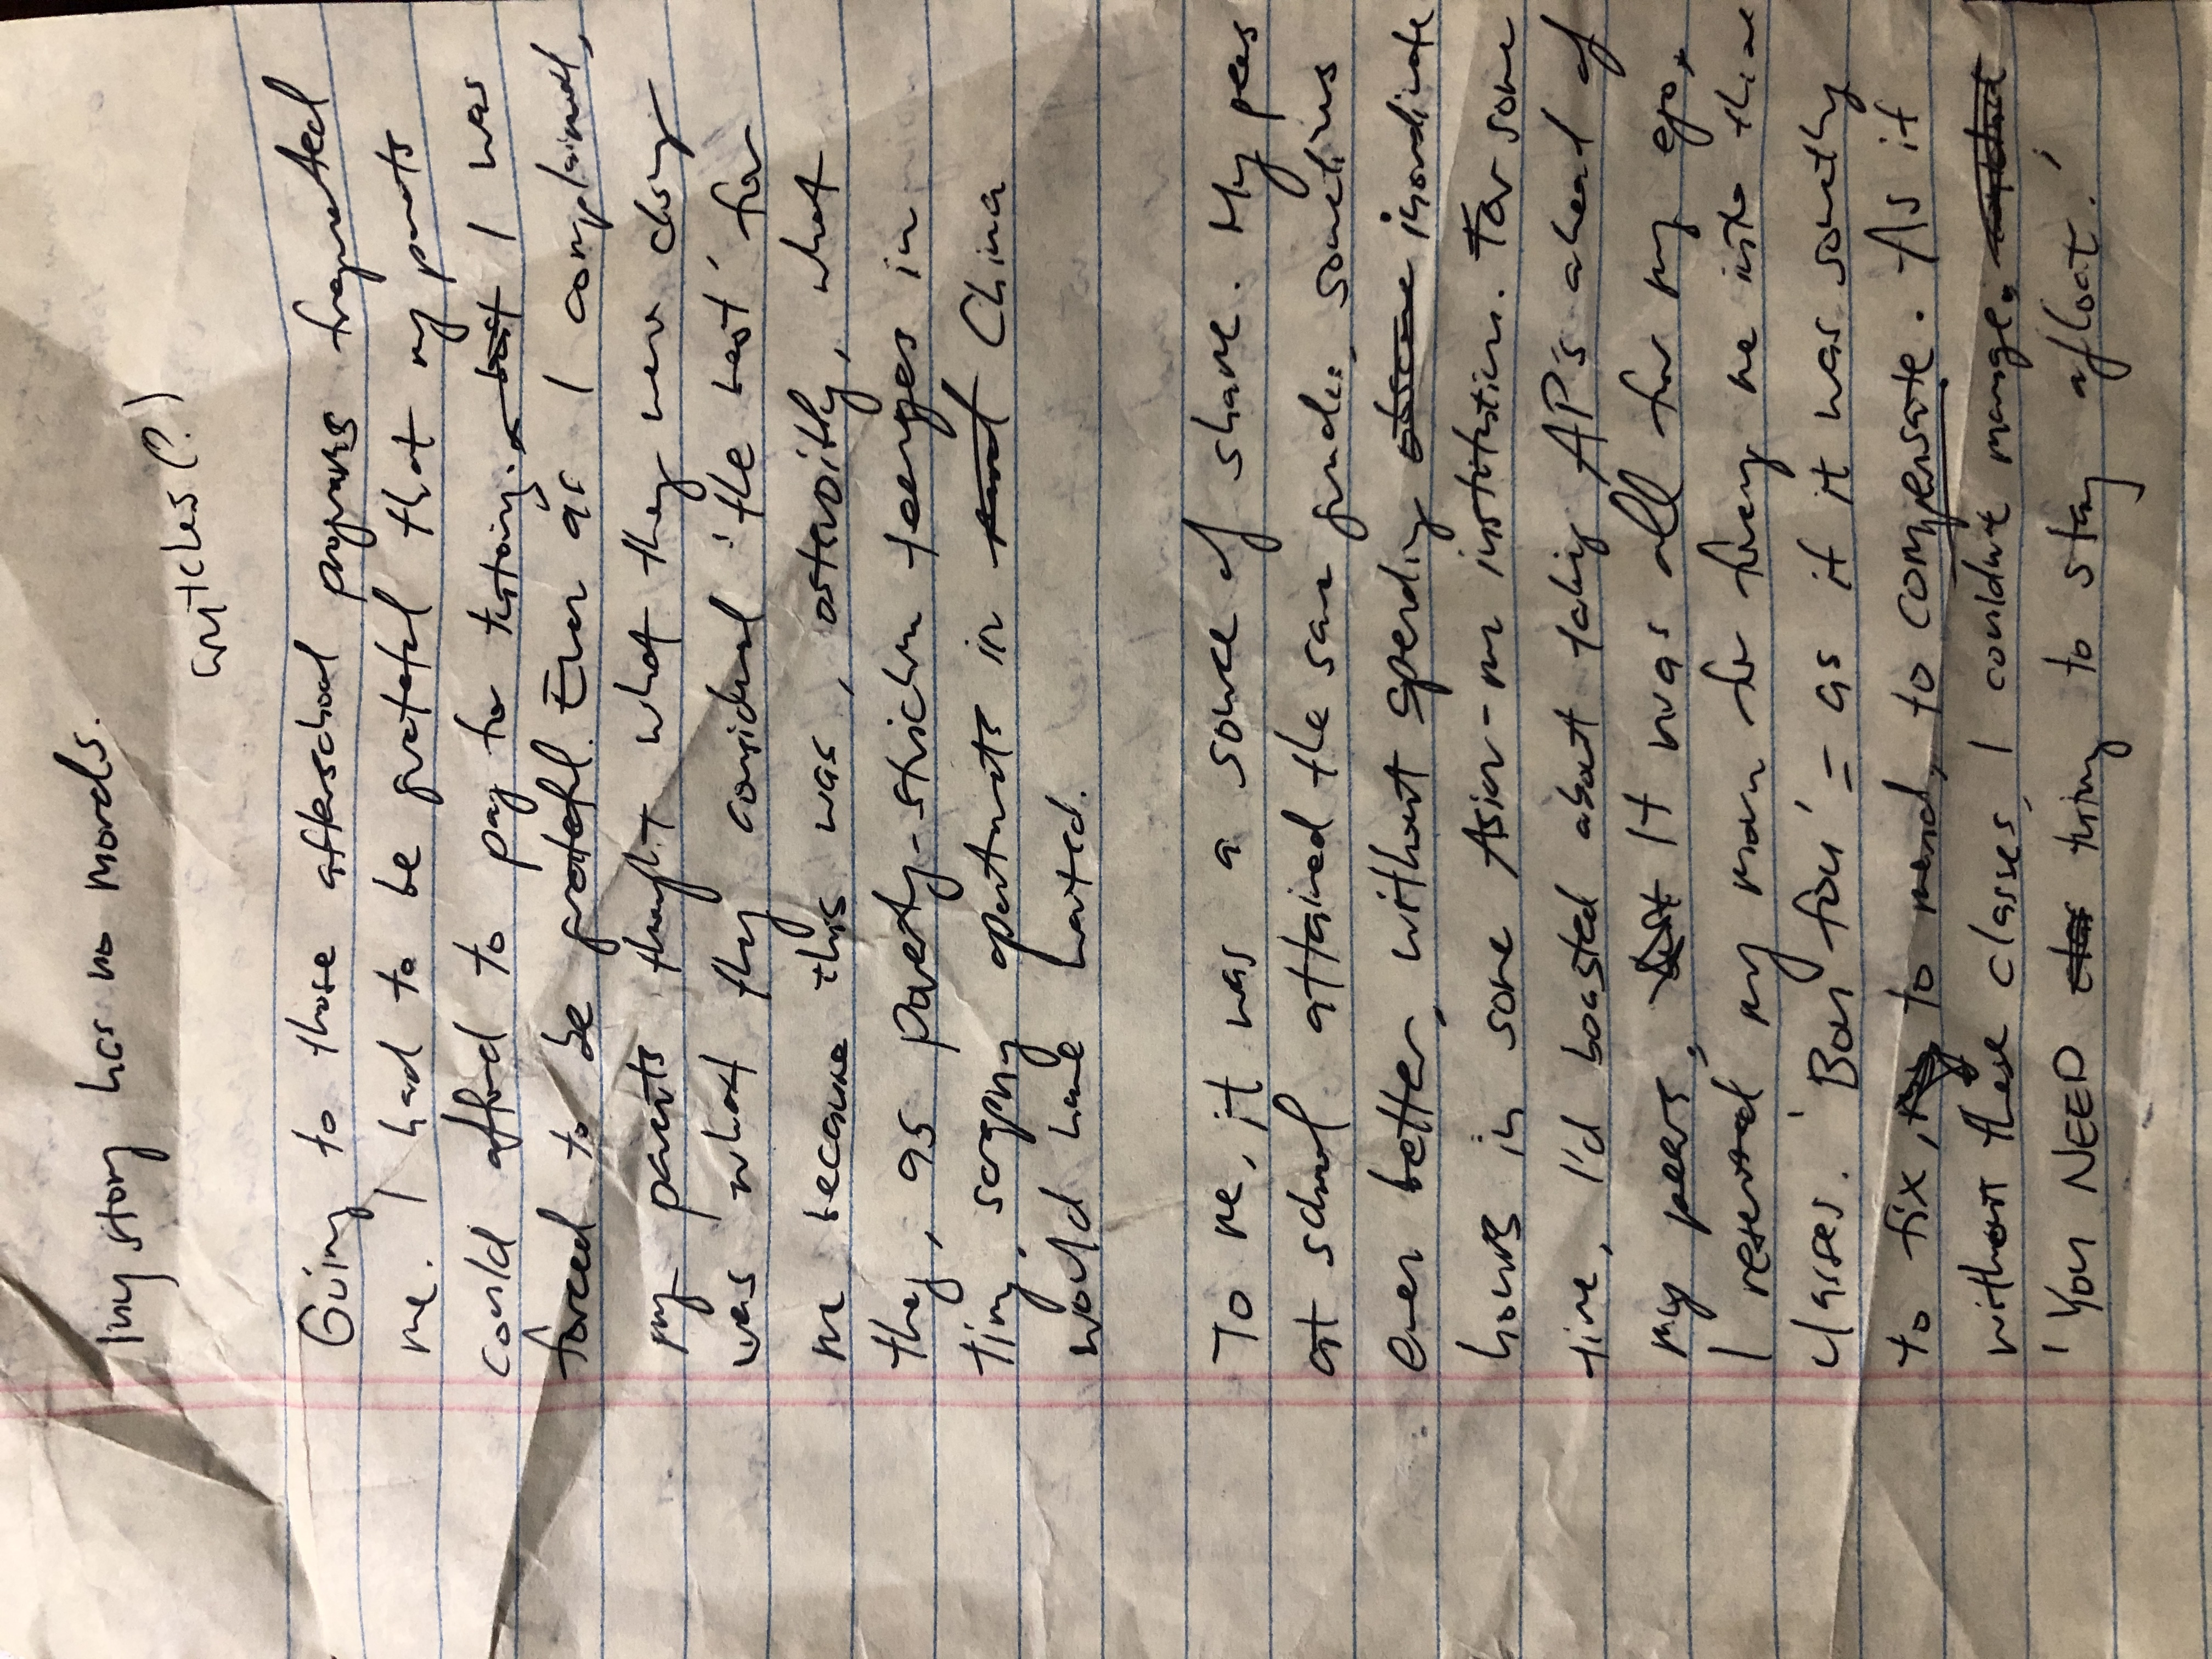 my story has no morals.
critcles(?)
Going to those afterschool programs fragmented
me. I had to be grateful that my parents
could afford to pay for tutoring. I was
forced to be grateful. Even as I complained,
my parents thought what they were doing
was what they considered 'the best' for
me because this was, ostensibly, what
they, as poverty-stricken teenagers in
tiny, scrappy apartments in China
would have wanted.
To me, it was a source of shame. My peers
at school attained the same grades, sometimes
even better, without spending obscene inordinate
hours in some Asian-run institution. For some
time, I'd boasted about taking AP's ahead of
my peers, but It was all for my ego.
I resented my mom for forcing me into these
classes. 'Bou fou' – as if it was something
to fix, to mend, to compensate. As if
without these classes, I couldn't manage.
'You NEED this to stay afloat.'